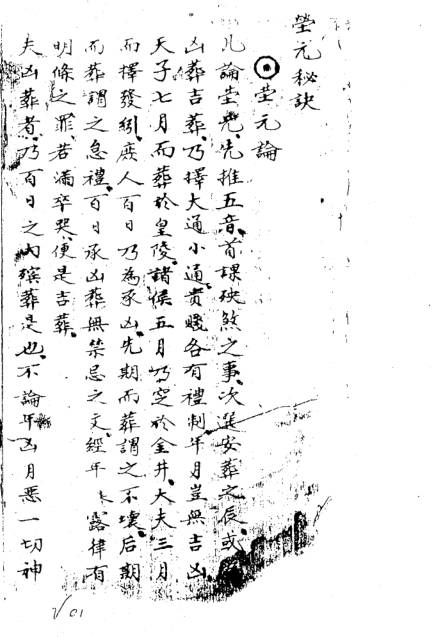 塋元秘訣
塋元論
凡論塋元先推五音首課殃煞之事次選安葬之辰或
凶葬吉葬乃擇大通小通貴賤各有禮制年月豈無吉凶
天子七月而葬於皇陵諸侯五月乃定於金井大夫三月
而擇發紖庶人百日乃為承凶先期而葬謂之不壞后期
而葬謂之怠禮百日承凶葬無禁忌之文經年 露律有
明條之罪若滿卒哭便是吉葬
夫凶葬者乃百日之內殯葬是也不論年凶月惡一切神
01